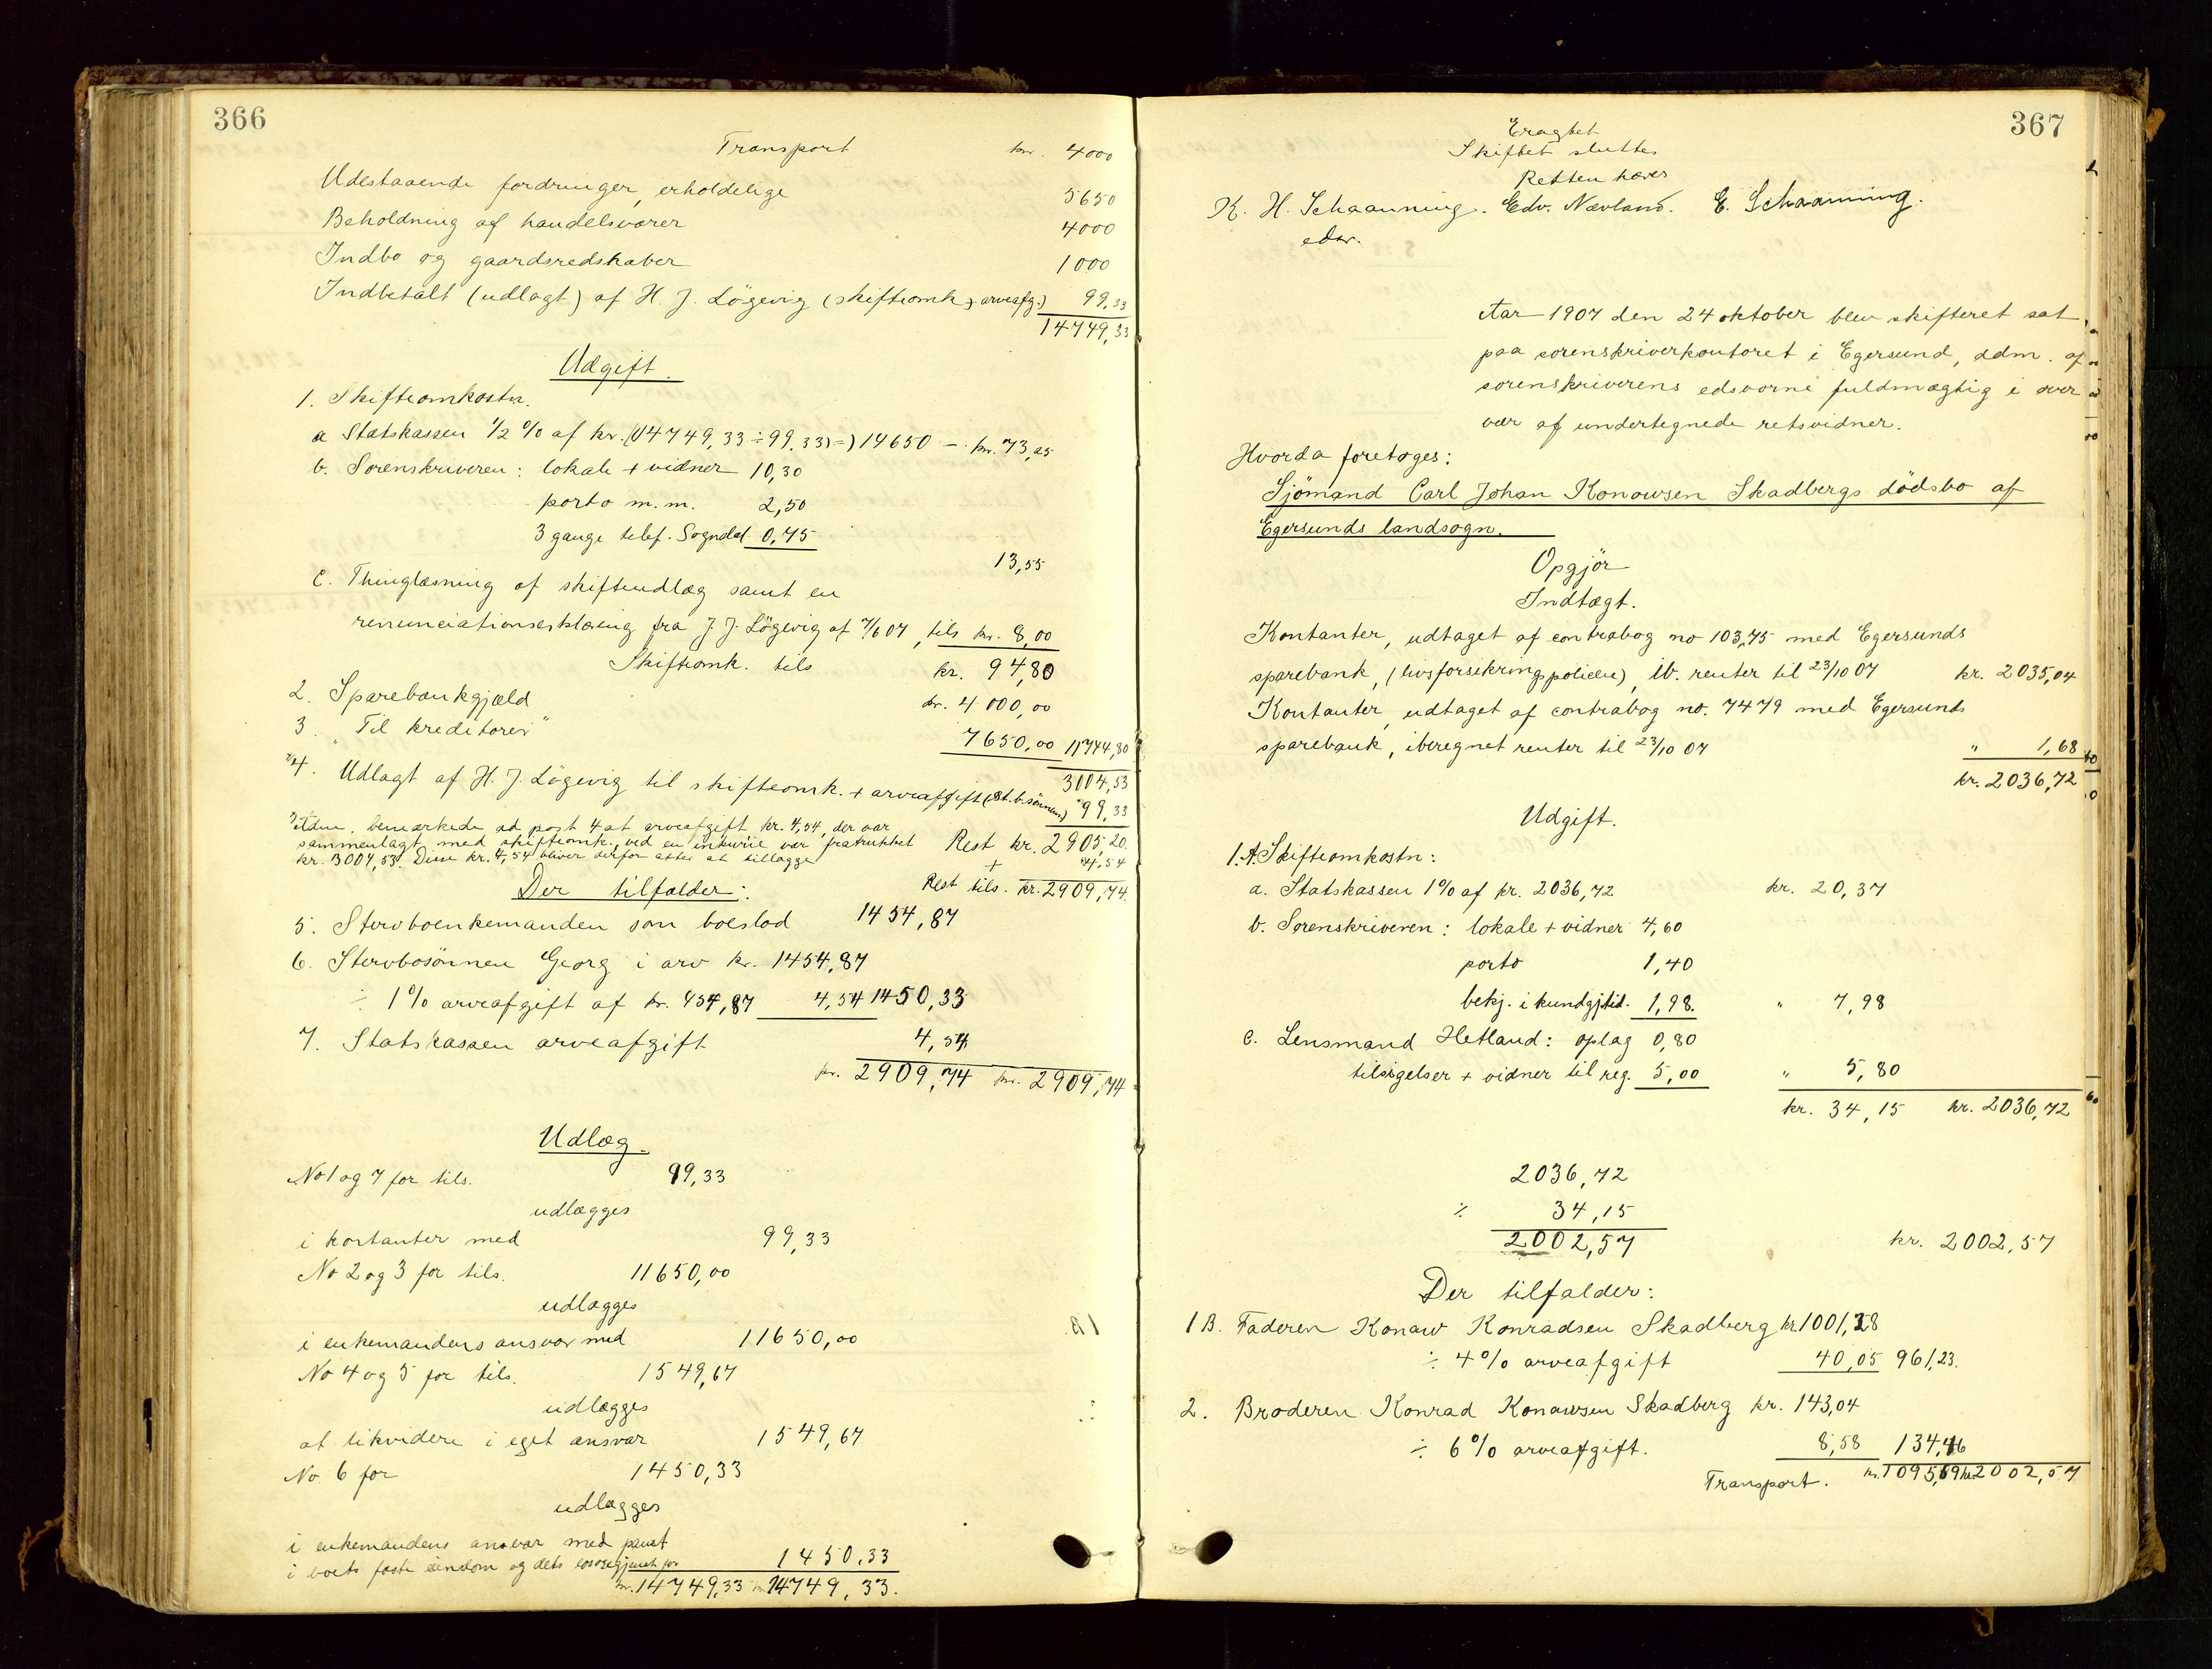 366
Transport kr. 4000
Udestaaende fordringer, erholdelige 5650
Beholdning af handelsvarer 4000
Indbo og gaardsredskaber 1000
Indbetalt (udlagt) af H. J. Lögevig (skifteomk. + arveafg.) 99,33
14749,33
Udgift.
1. Skifteomkostn.
a Statskassen 1/2 % af kr. (14749,33 ÷ 99,33) =) 14650 — kr. 73,25
b. Sorenskriveren: lokale + vidner 10,30
porto m.m. 2,50
3 gange telef. Sogndal 0,75
13,55
c. Thinglæsning af skifteudlæg samt en
renunciationserklæring fra J. J. Lögevig af 7/6 07, tils kr. 8,00
Skifteomk. tils kr. 94,80
2. Sparebankgjæld kr. 4000,00
3. "Til kreditorer" 7650,00 11744,80
3004,53
*4. Udlagt af H. J. Lögevig til skifteomk. + arveafgift (st.b.sönnen) " 99,33
Rest kr. 2905,20
*) Adm. bemærkede ad post 4 at arveafgift kr. 4,54, der var
sammenlagt med skifteomk., ved en inkurie var fratrukket
kr. 3004,53. Disse kr. 4,54 bliver derfor atter at tillægge
+ 4,54
Rest tils. kr. 2909,74
Der tilfalder:
5. Stervboenkemanden som boeslod 1454,87
6. Stervbosönnen Georg i arv kr. 1454,87
÷ 1% arveafgift af kr. 454,87 4,54 1450,33
7. Statskassen arveafgift 4,54
kr. 2909,74 kr. 2909,74
Udlæg.
No 1 og 7 for tils. 99,33
udlægges
i kontanter med 99,33
No 2 og 3 for tils. 11650,00
udlægges
i enkemandens ansvar med 11650,00
No 4 og 5 for tils. 1549,67
udlægges
at likvidere i eget ansvar 1549,67
No. 6 for 1450,33
udlægges
i enkemandens ansvar med pant
i boets faste eiendom og dets for 1450,33
kr. 14749,33 kr. 14749,33.
367
Eragtet
Skiftet sluttes
Retten hæves
K. H. Schaanning. Edv. Nævland. E. Schaanning.
edsv.
Aar 1907 den 24 oktober blev skifteret sat
paa sorenskriverkontoret i Egersund, adm. af
sorenskriverens edsvorne fuldmægtig i over
vær af undertegnede retsvidner.
Hvorda foretoges:
Sjömand Carl Johan Konowsen Skadbergs dödsbo af
Egersunds landsogn.
Opgjör
Indtægt.
Kontanter, udtaget af contrabog no 10375 med Egersunds
sparebank, (livsforsikringspolicen), ib. renter til 23/10 07 kr. 2035,04
Kontanter, udtaget af contrabog no. 7479 med Egersunds
sparebank, iberegnet renter til 23/10 07 " 1,68
kr. 2036,72
Udgift.
1. A. Skifteomkostn:
a. Statskassen 1% af kr. 2036,72 kr. 20,37
b. Sorenskriveren: lokale + vidner 4,60
porto 1,40
bekj. i kundgj.tid. 1,98. " 7,98
c. Lensmand Hetland: oplag 0,80
tilsigelser + vidner til reg. 5,00 " 5,80
kr. 34,15 kr. 2036,72
2036,72
÷ 34,15
2002,57 kr. 2002,57
Der tilfalder:
1 B. Faderen Konaw Konradsen Skadberg kr. 1001,28
÷ 4% arveafgift 40,05 961,23.
2. Broderen Konrad Konawsen Skadberg kr. 143,04
÷ 6% arveafgift. 8,58 134,46
Transport. kr. 1095,69 kr. 2002,57